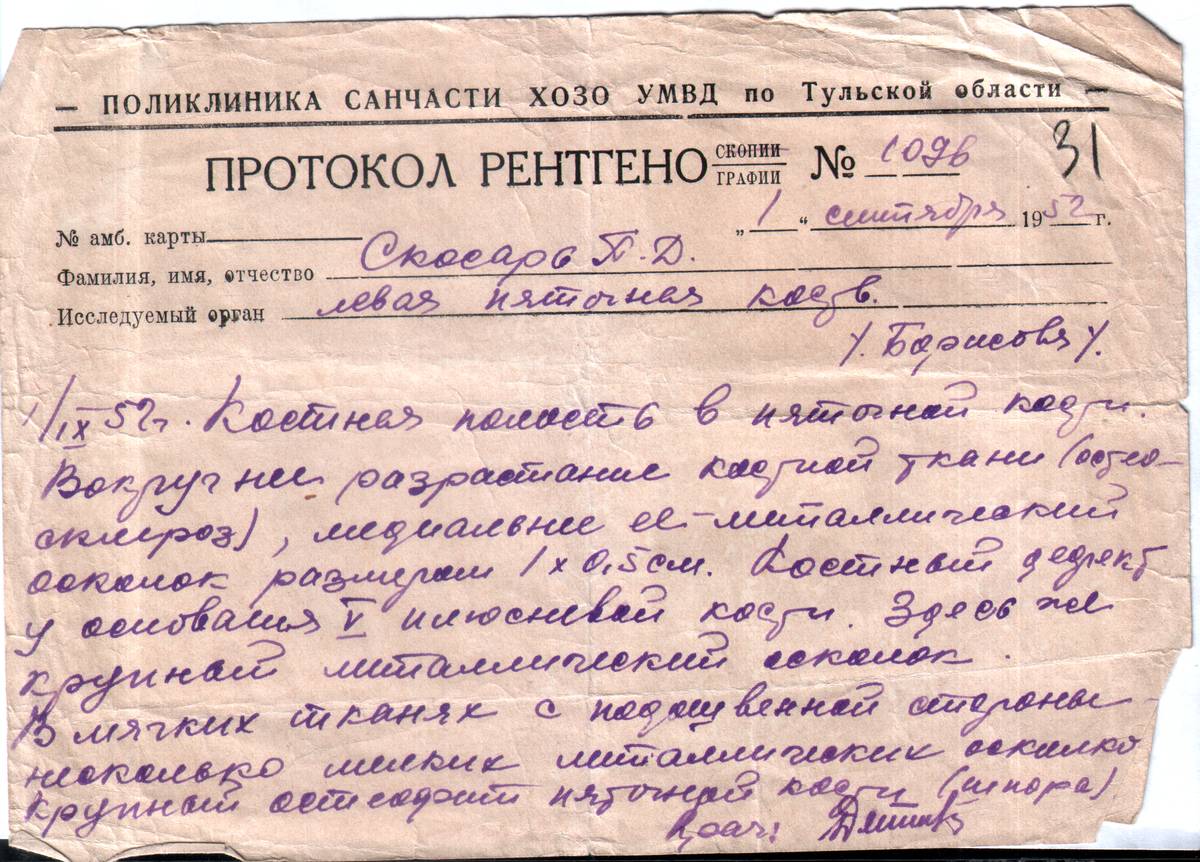 — ПОЛИКЛИНИКА САНЧАСТИ ХОЗО УМВД по Тульской области —
ПРОТОКОЛ РЕНТГЕНО СКОПИИ ГРАФИИ № 1096 31
„1“ сентября 1952 г.
№ амб. карты
Фамилия, имя, отчество Скосарь П.Д.
Исследуемый орган левая пяточная кость.
/. Борисовя /.
1/IX 52 г. Костная полость в пяточной кости.
Вокруг нее разрастание костной ткани (остео-
склероз), медиальнее её - металлический
осколок размером 1 х 0,5 см. Костный дефект
у основания V плюсневой кости. Здесь же
крупный металлический осколок.
В мягких тканях с подошвенной стороны
несколько мелких металлических осколко
Крупный остеофит пяточной кости (шпора)
Врач: